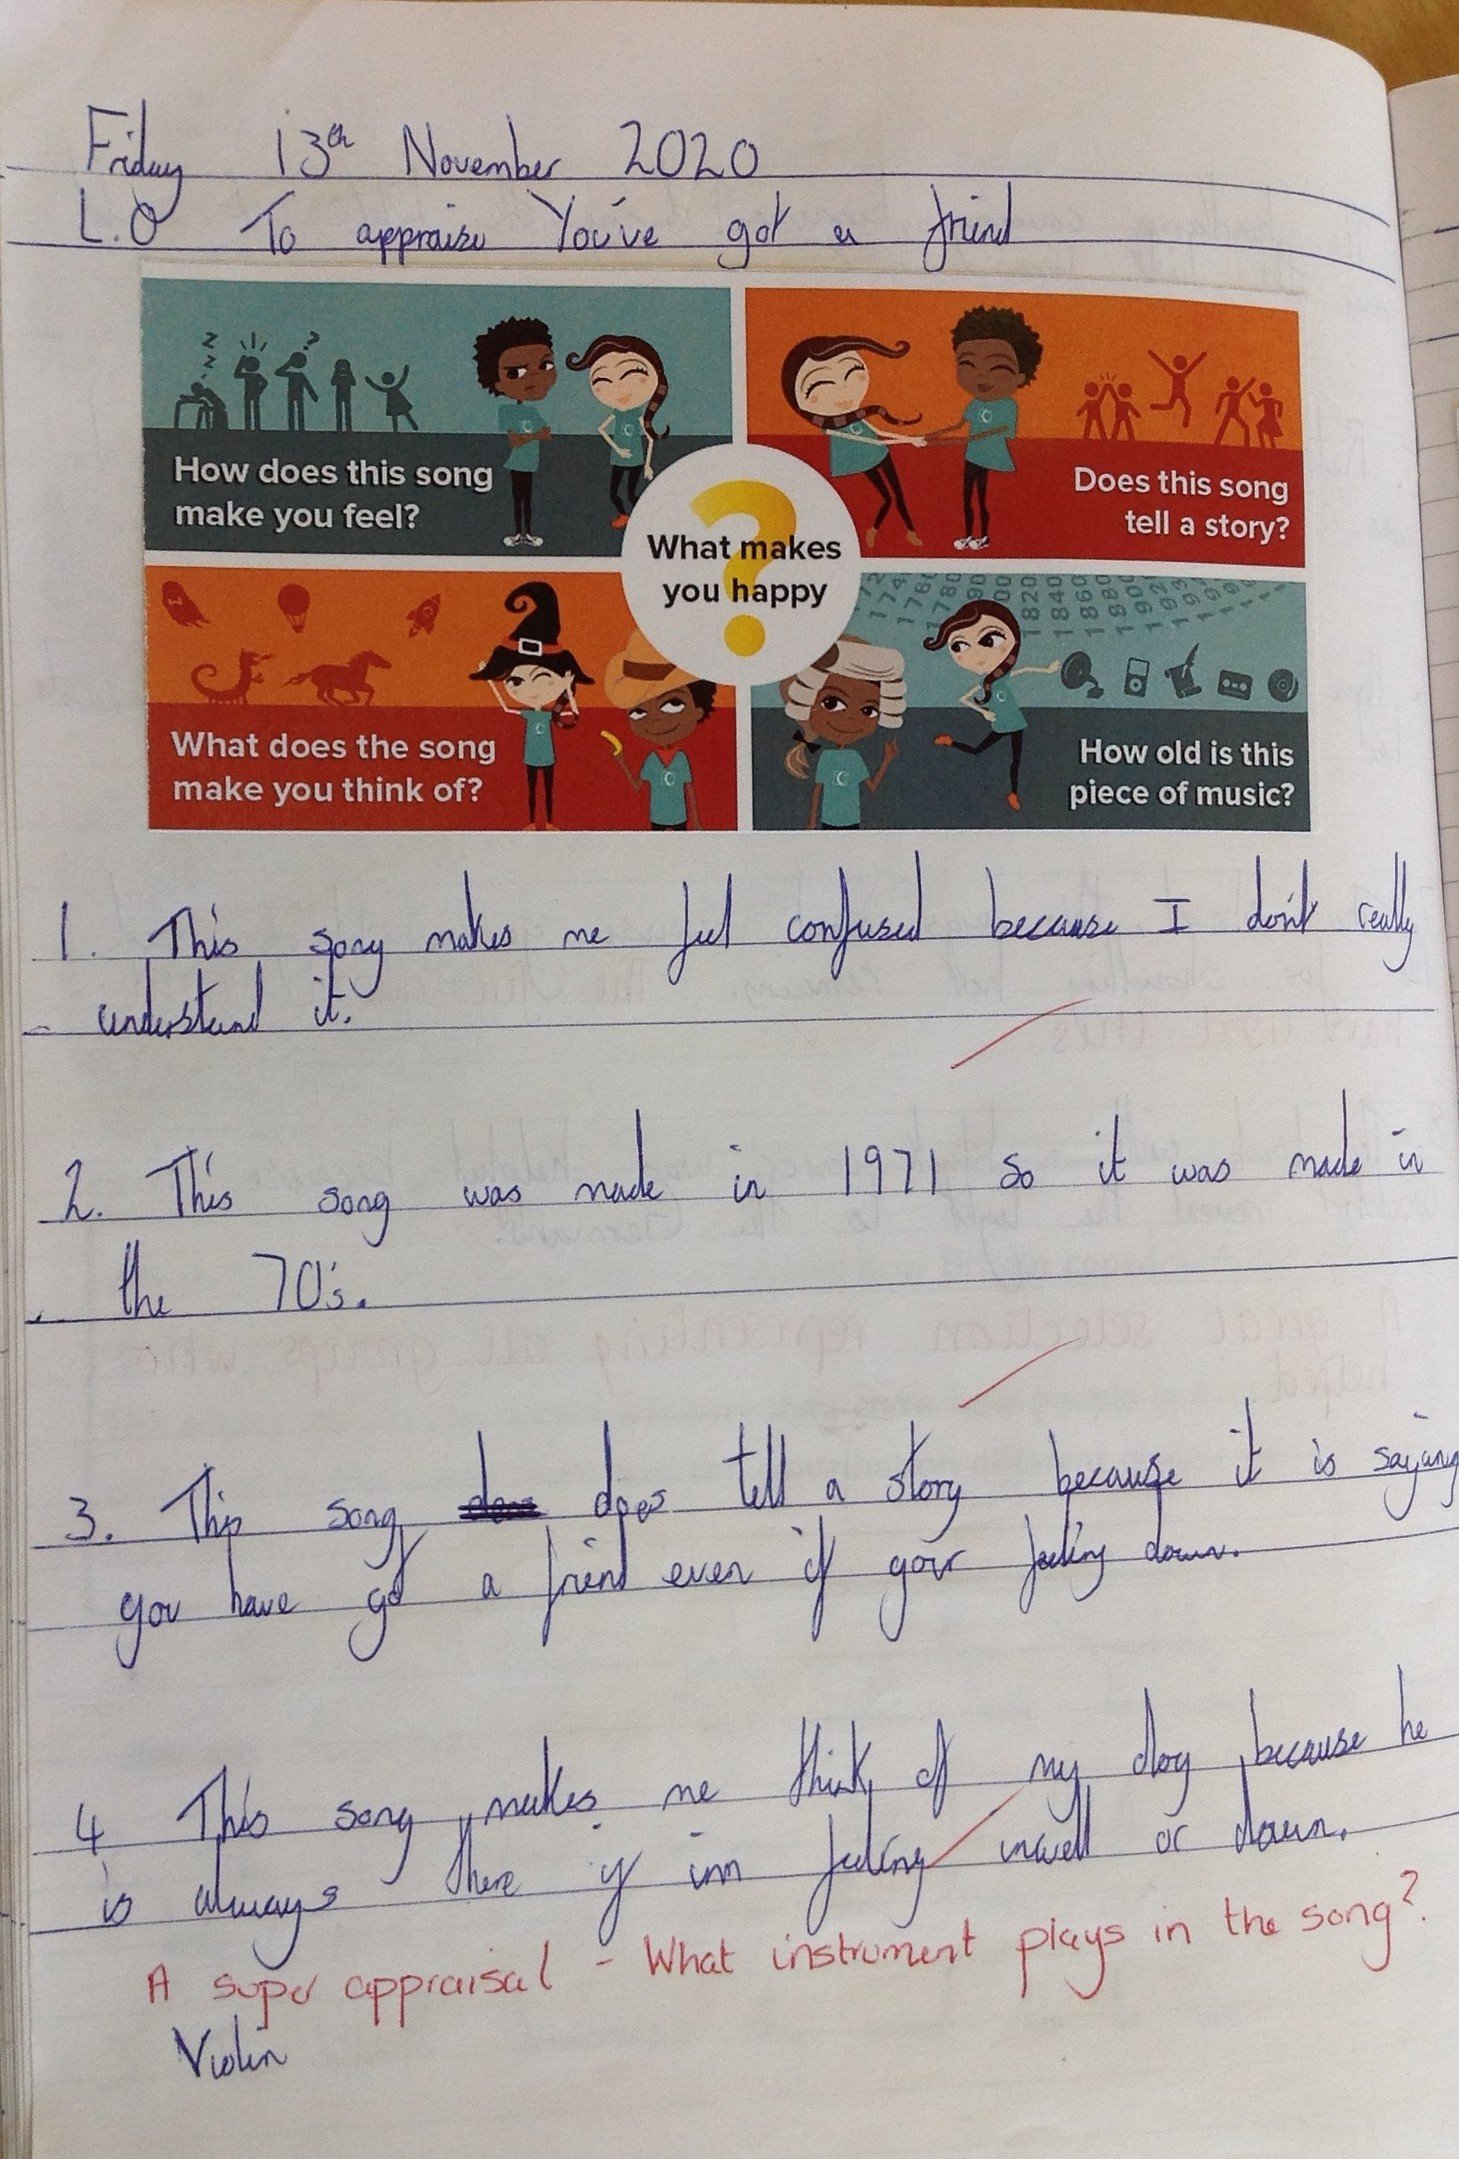 Friday 13th November 2020
L.O To appraise You've got a friend
How does this song
make you feel?
Does this song
tell a story?
What makes
you happy
?
What does the song
make you think of?
How old is this
piece of music?
1. This song makes me feel confused because I don't really
understand it.
2. This song was made in 1971 so it was made in
the 70's.
3. This song does tell a story because it is sayang
you have got a friend even if your feeling down.
4 This song makes me think of my dog because he
is always there if im feeling unwell or down.
A super appraisal - What instrument plays in the song?
Violin